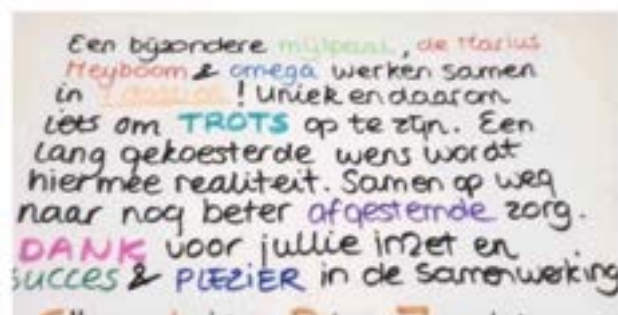 Een bijzondere mijlpaal, de Marius
Meyboom & omega werken samen
in 1 dossier! Uniek en daarom
iets om TROTS op te zijn. Een
lang gekoesterde wens wordt
hiermee realiteit. Samen op weg
naar nog beter afgestemde zorg.
DANK voor jullie inzet en
succes & PLEZIER in de samenwerking